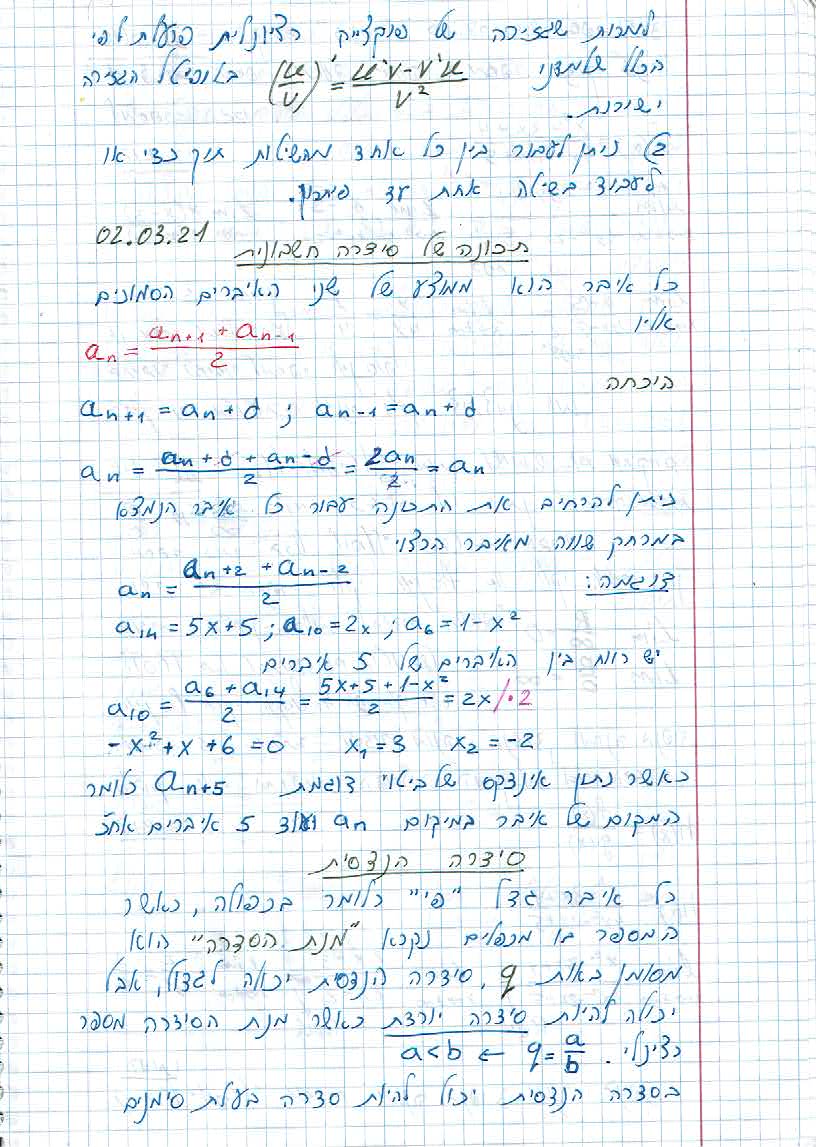 למרות שגזירה של פונקציה רציונלית פועלת לפי
הכלל שלמדנו (u/v)' = (u'v - v'u)/v² באופיטל הגזירה
ישירות.
2) ניתן לעבור בין כל אחד מהשיטות תוך כדי או
לעבוד בשיטה אחת עד פיתרון.
02.03.21
תכונה של סידרה חשבונית
כל איבר הוא ממוצע של שני האיברים הסמוכים
אליו
aₙ = (aₙ₊₁ + aₙ₋₁)/2
הוכחה
aₙ₊₁ = aₙ + d ; aₙ₋₁ = aₙ + d
aₙ = (aₙ + d + aₙ - d)/2 = 2aₙ/2 = aₙ
ניתן להרחיב את התכונה עבור כל איבר הנמצא
במרחק שווה מאיבר הרצוי
aₙ = (aₙ₊₂ + aₙ₋₂)/2
דוגמה:
a₁₄ = 5x+5 ; a₁₀ = 2x ; a₆ = 1-x²
יש רווח בין האיברים של 5 איברים
a₁₀ = (a₆ + a₁₄)/2 = (5x+5+1-x²)/2 = 2x /·2
-x²+x+6=0 x₁=3 x₂=-2
כאשר נתון אינדקס של ביטוי דוגמת aₙ₊₅ כלומר
המקום של איבר במיקום aₙ ועוד 5 איברים אחכ
סידרה הנדסית
כל איבר גדל "פי" כלומר בכפולה, כאשר
המספר בו מכפלים נקרא "מנת הסדרה" הוא
מסומן באות q, סידרה הנדסית יכולה לגדול, אבל
יכולה להיות סידרה יורדת כאשר מנת הסידרה מספר
רציונלי. q = a/b ← a<b
בסדרה הנדסית יכול להיות סדרה בעלת סימנים